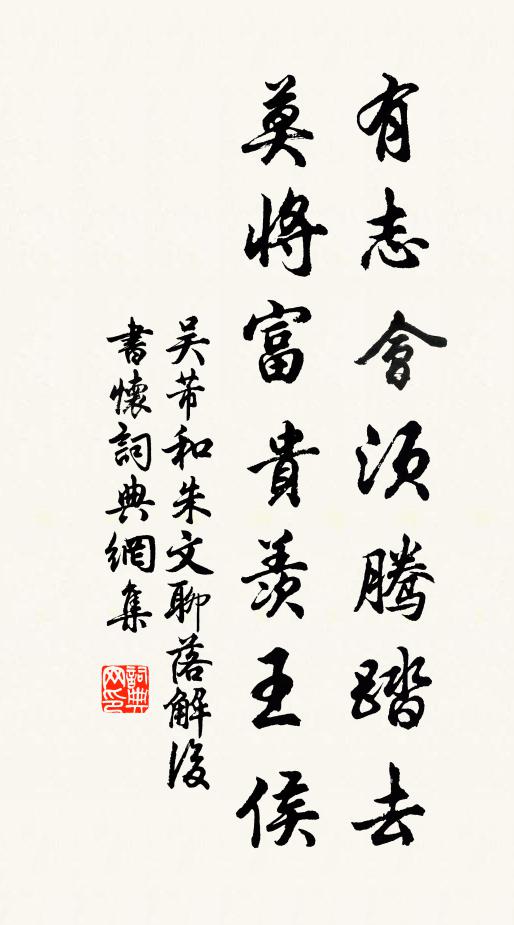 有志會須騰踏去
莫將富貴羨王侯
吴芾和朱文聊落解後
書懷詞典網集
詞典網印